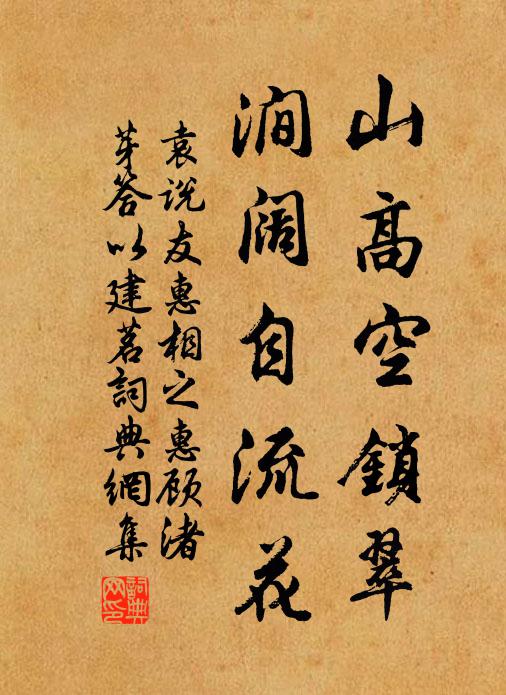 山高空鎖翠
澗闊自流花
袁说友惠相之惠顾渚
芽答以建茗詞典網集
詞典網印